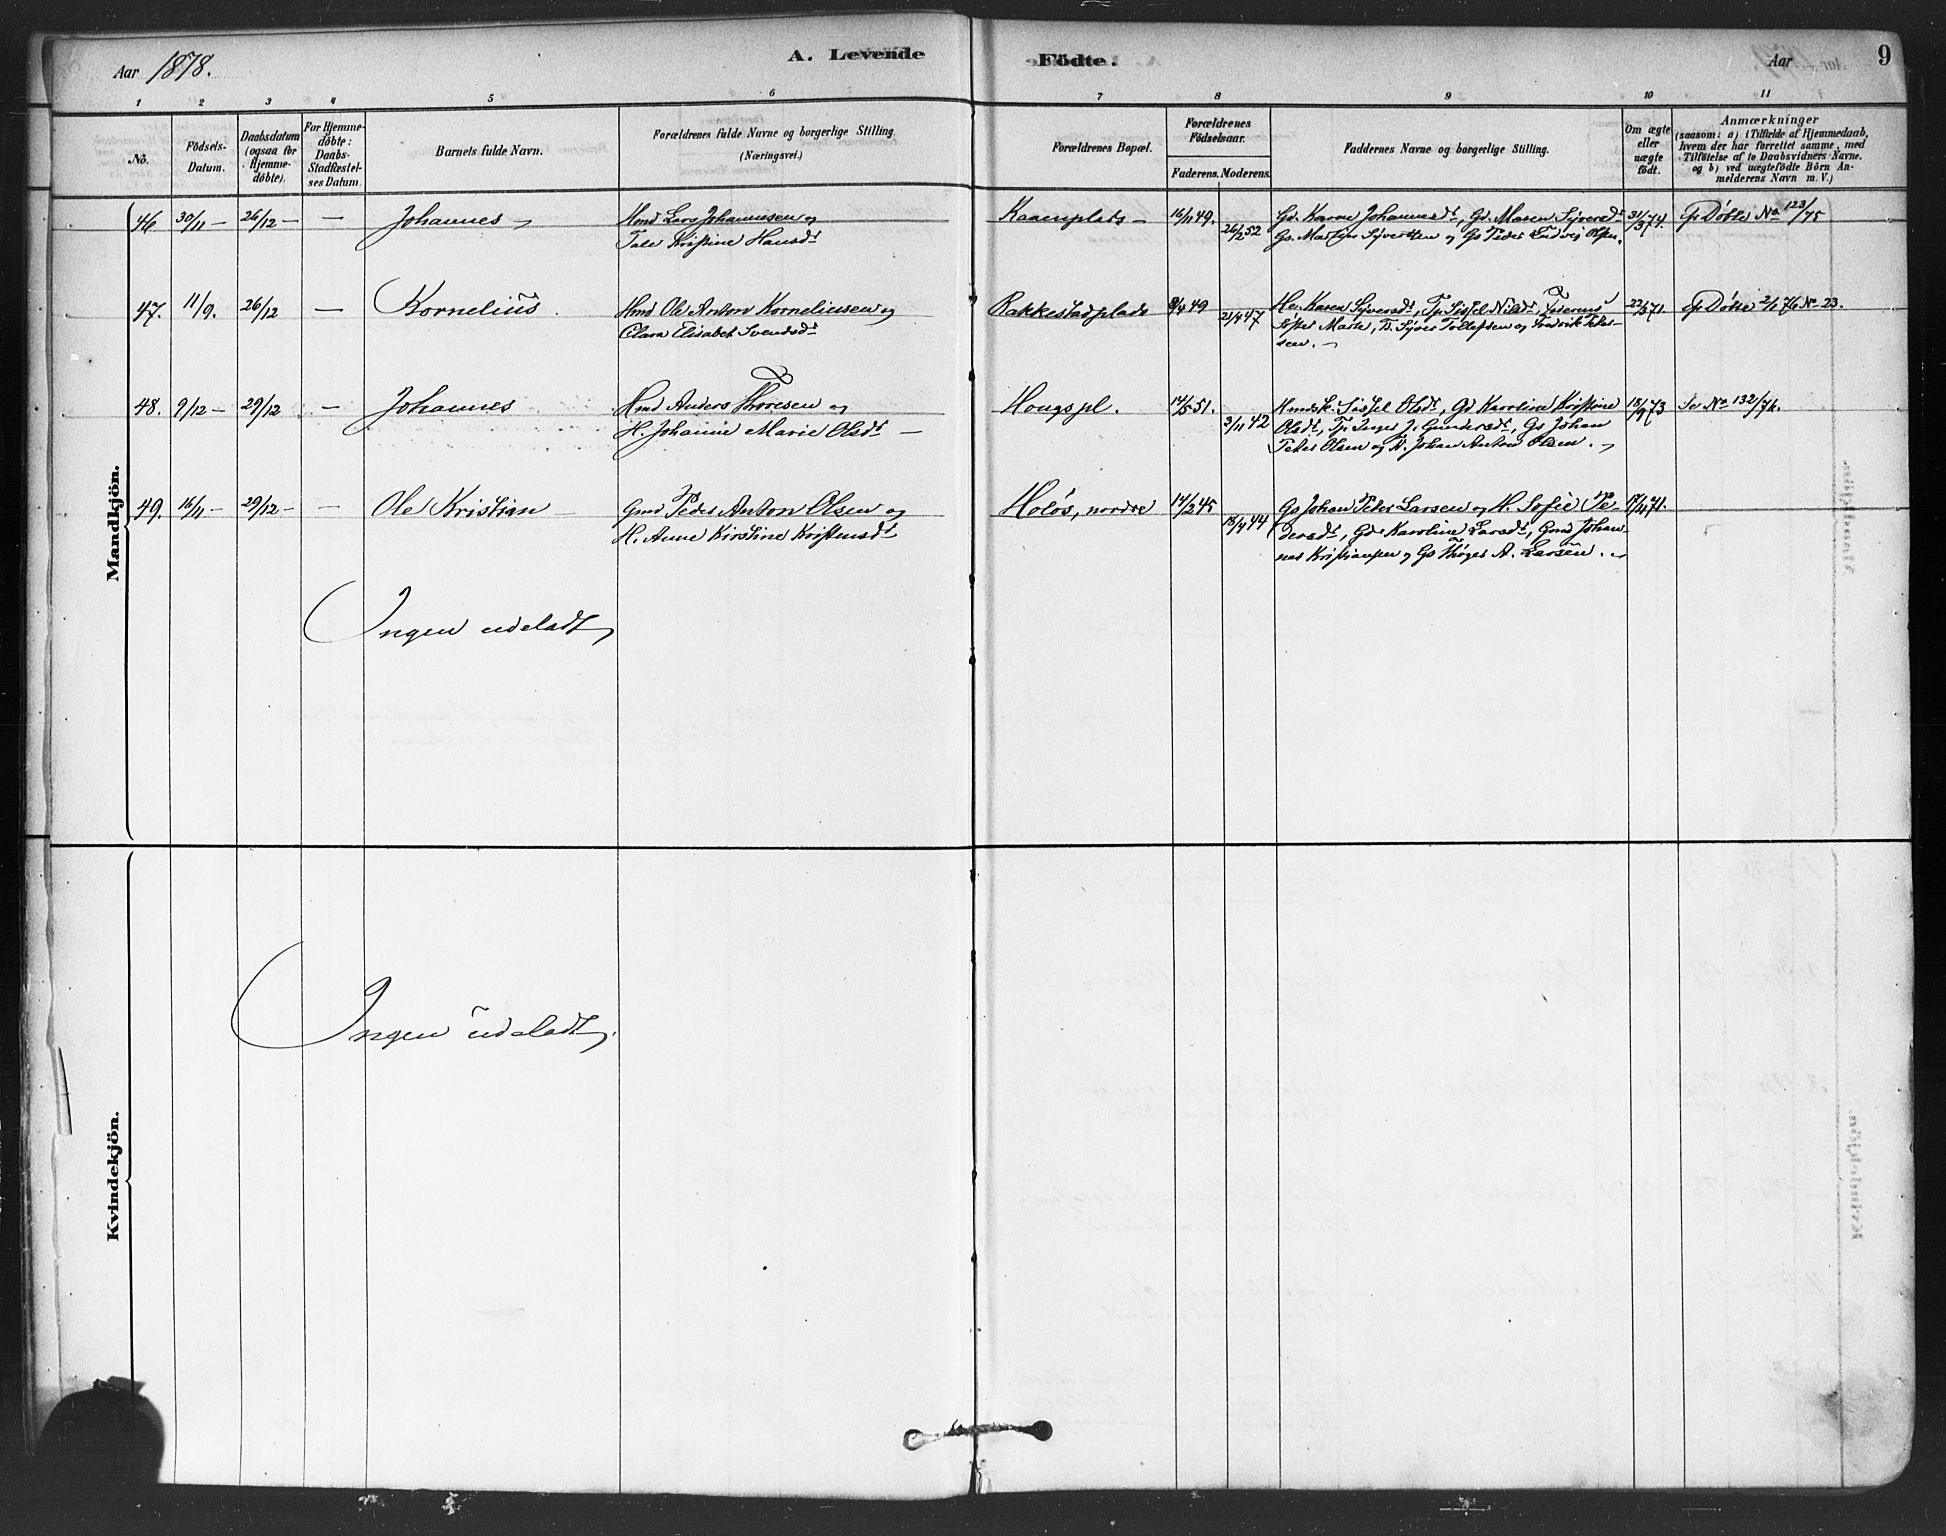 Aar 1878.
A. Levende
Födte.
Aar
9
1 2 3 4 5 6 7 8 9 10 11
No.
Födsels-Datum.
Daabsdatum (ogsaa for Hjemme-döbte).
For Hjemme-döbte: Daabs-Stadfæstel-ses Datum.
Barnets fulde Navn.
Forældrenes fulde Navne og borgerlige Stilling.
(Næringsvei.)
Forældrenes Bopæl.
Forældrenes Födselsaar.
Faderens. Moderens.
Faddernes Navne og borgerlige Stilling.
Om ægte eller uægte födt.
Anmærkninger
(saasom: a) i Tilfælde af Hjemmedaab,
hvem der har forrettet samme, med
Tilföielse af to Daabsvidners Navne.
og b) ved uægtefödte Börn An-
melderens Navn m. V.)
Mandkjön.
46 30/11 — 26/12 — — Johannes
Hmd Johannesen og
Kristine Hansdt
16/11 49.
26/2 52
Gd. Karen Johannesdt, Gd. Maren Syversdt
Gs. Syvertsen og Gs Peder Ludvig Olsen.
31/3 74.
Döbte No 123/75
47. 11/9. 26/12 — Kornelius.
Hmd Ole Anton Korneliussen og
Clara Elisabet Svendsdt
Rakkestadplads
8/4 49
21/4 47
Karen Syversdt, Sissel Nilsdt,
Marte, Syver Tollefsen og Fredrik
22/3 71.
Döbte 2/1 76 No 23.
48. 9/12 — 29/12 — Johannes
Hmd Anders Thoresen og
H. Johanne Marie Olsdt —
Hougspl.
14/5 51.
3/11 42
Sissel Olsdt, Gd Karoline Kristine
Olsdt, Tp. Inger J. Gundersdt, Gs Johan
Peter Olsen og Johan Anton Olsen.
15/9 73
Se No 132/76.
49. 16/11 — 29/12 — — Ole Kristian
Gmd Peder Anton Olsen og
H. Anne Kirstine Kristensdt
Holös, nordre
14/2 45
15/4 44
Gs Johan Peter Larsen og H. Sofie Pe-
dersdt, Gd Karoline Larsdt, Gmd Johan-
nes Kristiansen og Gs A. Larsen.
17/4 71.
Ingen udeladt
Kvindekjön.
Ingen udeladt.